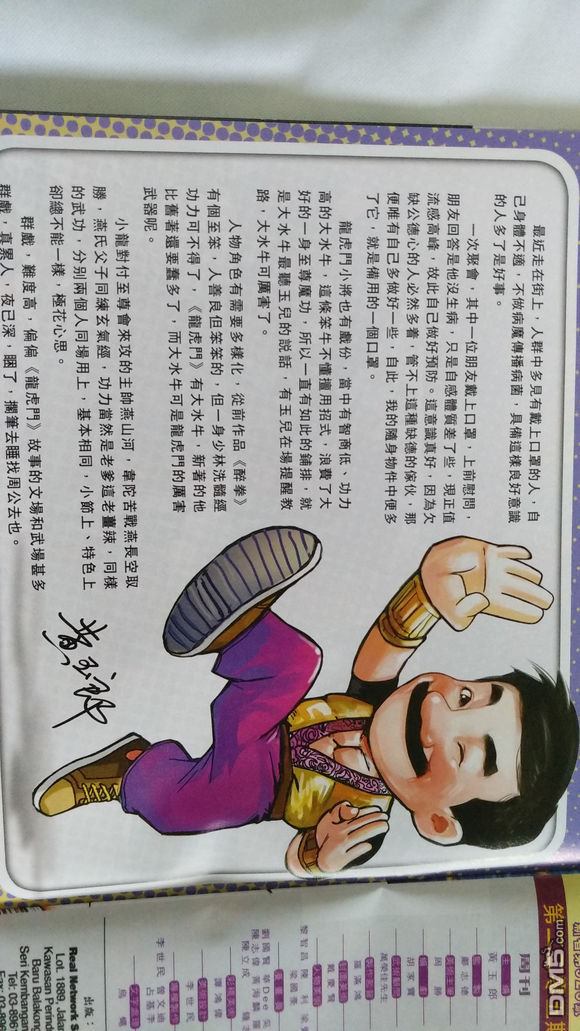 最近走在街上，人群中多見有戴上口罩的人，自
己身體不適，不做病魔傳播病菌，具備這樣良好意識
的人多了是好事。
一次聚會，其中一位朋友戴上口罩，上前慰問，
朋友回答是他沒生病，只是自感體質差了些，現正值
流感高峰，故此自己做好預防。這意識真好，因為欠
缺公德心的人必然多着，管不上這種缺德的傢伙，那
便唯有自己多做好一些，自此，我的隨身物件中便多
了它，就是備用的一個口罩。
龍虎門小將也有戲份，當中有智商低、功力
高的大水牛，這條笨牛不懂擅用招式，浪費了大
好的一身至尊魔功，所以一直有如此的鋪排，就
是大水牛最聽玉兒的說話，有玉兒在場提醒教
路，大水牛可厲害了。
人物角色有需要多樣化，從前作品《醉拳》
有個至笨，人善良但笨笨的，但一身少林洗髓經
功力可不得了，《龍虎門》有大水牛，新著的他
比舊著還要蠢多了，而大水牛可是龍虎門的厲害
武器呢。
小龍對付至尊會來攻的主帥燕山河，韋陀苦戰燕長空取
勝，燕氏父子同練玄氣經，功力當然是老爹這老薑辣，同樣
的武功，分別兩個人同場用上，基本相同，小節上、特色上
卻總不能一樣，極花心思。
群戲，難度高，偏偏《龍虎門》故事的文場和武場甚多
群戲，真累人，夜已深，睏了，擱筆去睡找周公去也。
黃玉郎
第一
DMS.com
周刊
主編
黃玉郎
鄺志德
周勝
胡家寶
萬榮佳先生
羅滿鴻
戴慶賢
梁國豪
黎智昌 陳利
劉國賢 華Dee
陳志偉 黃海
陳立成
譚鴻偉
李世民
李世民 曾文迪
占基李
烏蠅
出版：
Real Network S
Lot. 1889, Jalan
Kawasan Perind
Baru Balakong
Seri Kembang
Tel: 03-896
Fax: 03-8